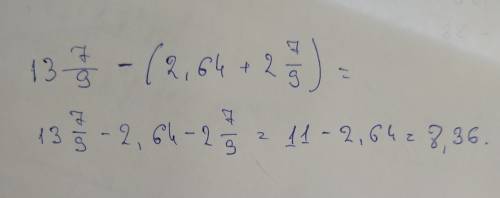 13 7/9 - (2,64 + 2 7/9) =
13 7/9 - 2,64 - 2 7/9 = 11 - 2,64 = 8,36.